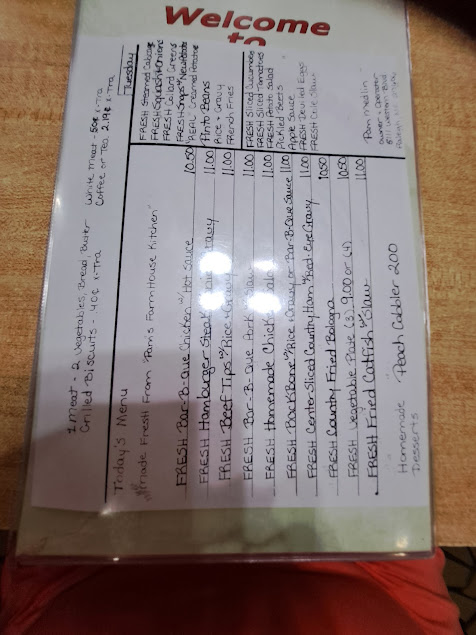 Welcome
to
1 Meat + 2 Vegetables, Bread, Butter
Grilled Biscuits - 40¢ x-tra
White Meat - 50¢ x-tra
Coffee or Tea 2.19¢ x-tra
Today's Menu
Tuesday
Made Fresh From Pam's FarmHouse Kitchen"
FRESH Bar-B-Que Chicken w/ Hot Sauce 10.50
FRESH Hamburger Steak Gravy 11.00
FRESH Beef Tips w/Rice + Gravy 11.00
FRESH Bar-B-Que Pork 11.00
FRESH Homemade Chicken 11.00
FRESH BackBone w/Rice + Gravy or Bar-B-Que Sauce 11.00
FRESH Center Sliced Country Ham w/Red Eye Gravy 11.00
FRESH Country Fried Bologna 10.50
FRESH Vegetable Plate (3) 9.00 or (4) 10.50
FRESH Fried Catfish w/Slaw 11.00
FRESH Steamed Cabbage
FRESH Squash + Onions
FRESH Collard Greens
FRESH Snaps w/New Potato
REAL Creamed Potatoes
Pinto Beans
Rice + Gravy
French Fries
FRESH Sliced Cucumbers
FRESH Sliced Tomatoes
FRESH Potato Salad
Pickled Beets
Apple Sauce
FRESH Deviled Eggs
FRESH Cole Slaw
Homemade Peach Cobbler 200
Desserts
Pam Medlin
Owner + Operator